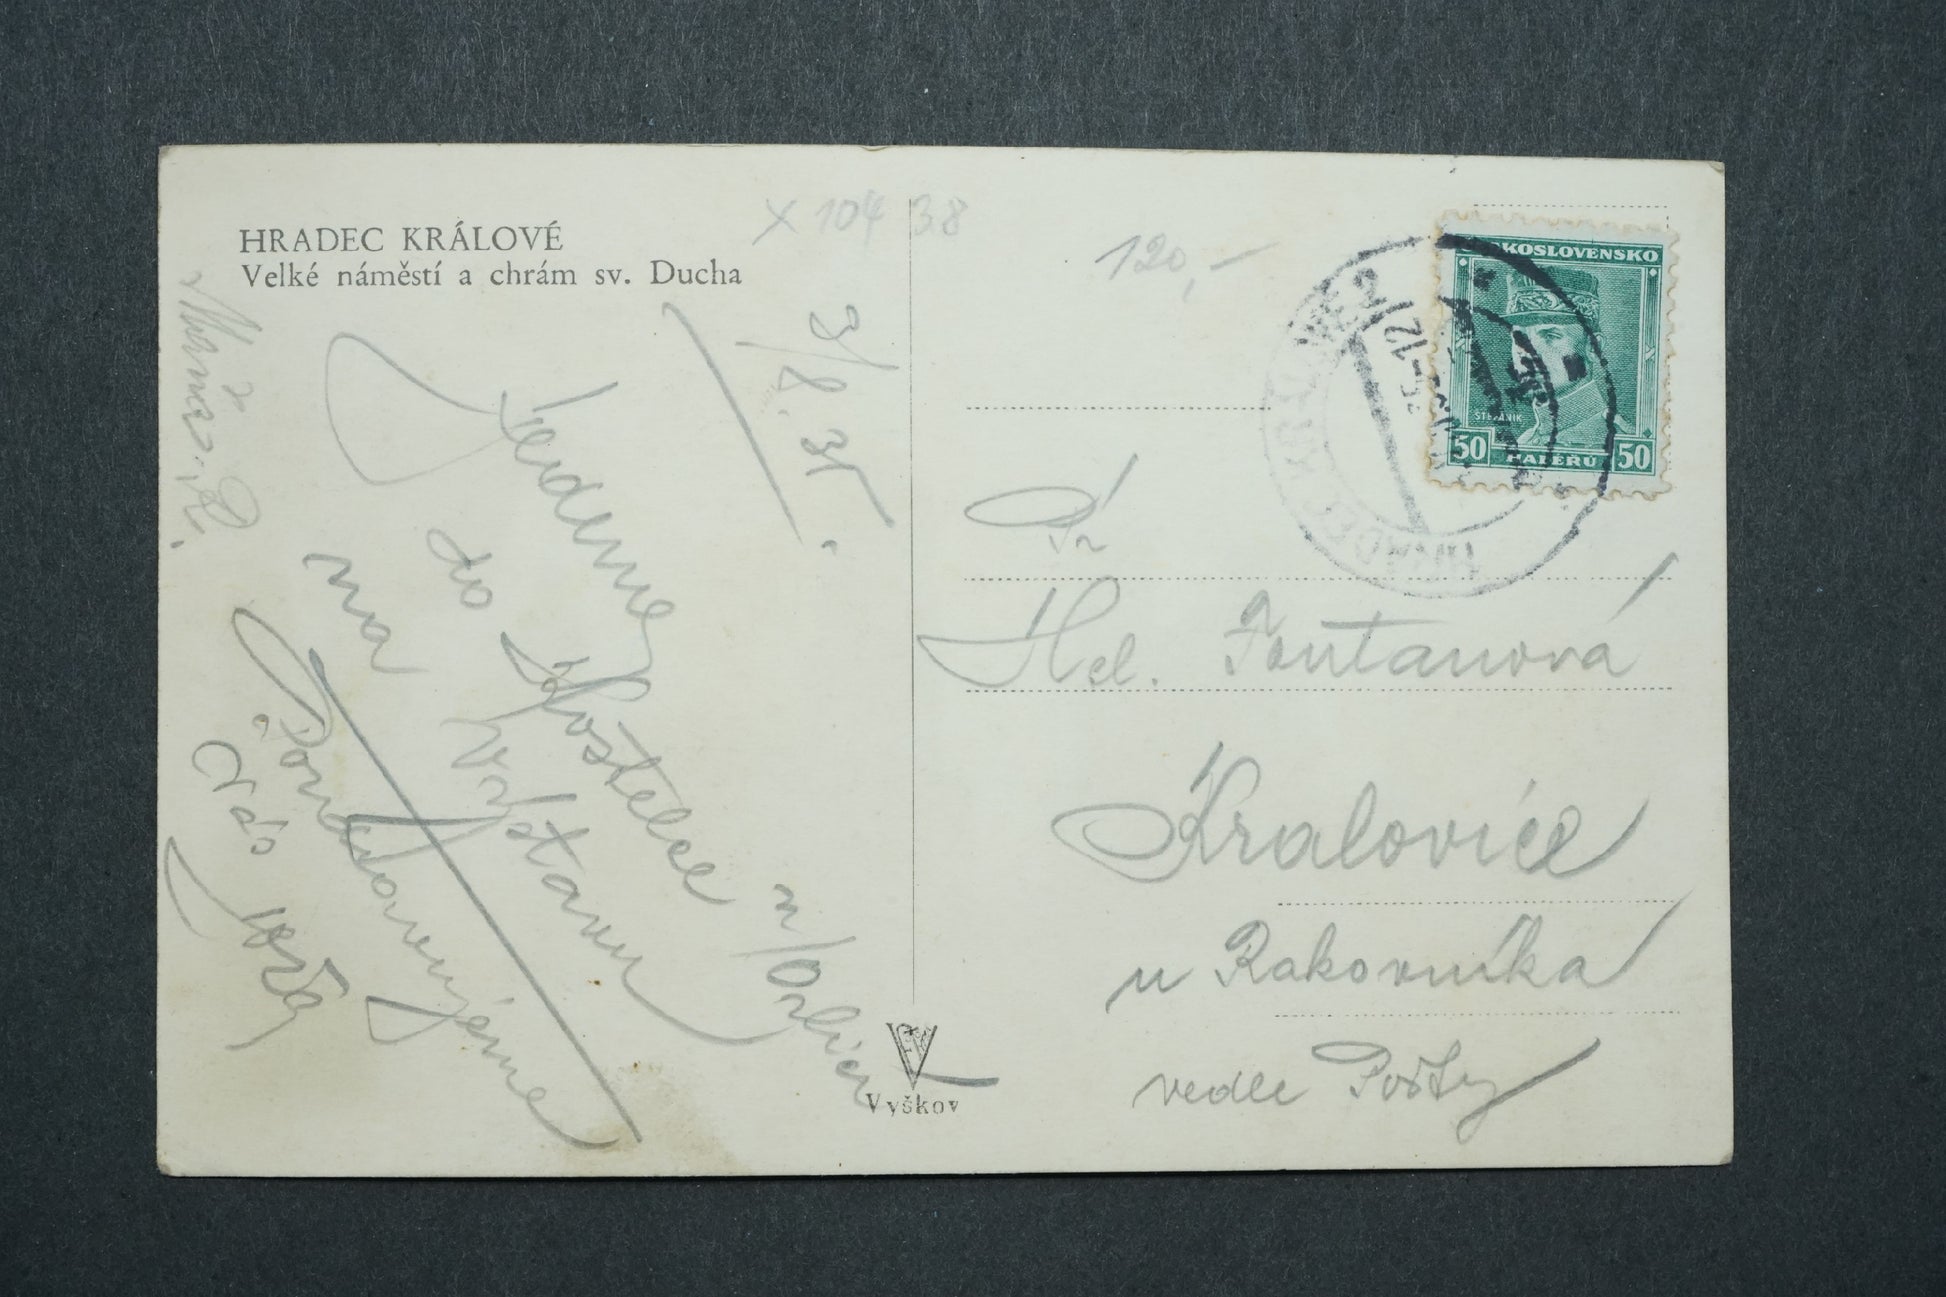 HRADEC KRÁLOVÉ
Velké náměstí a chrám sv. Ducha
x 104 38
120,-
3/8. 35.
Jedeme
do Kostelce n/Orlicí
na výstavu
Pozdravujeme
Vás
ČESKOSLOVENSKO
ŠTEFÁNIK
50 HALÉŘŮ 50
HRADEC KRÁLOVÉ 2
Hel. Fontanová
Kralovice
u Rakovníka
vedle Pošty
Vyškov